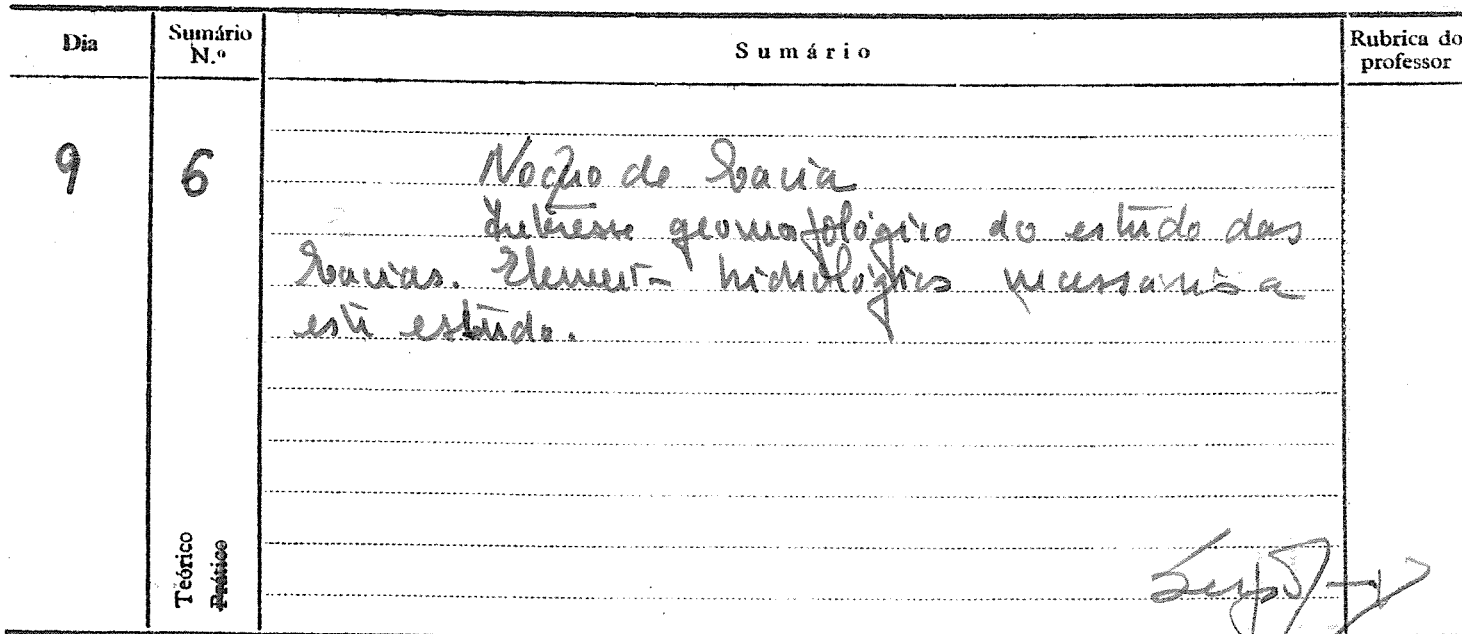 Dia
Sumário N.º
Sumário
Rubrica do professor
9
6
Noção de bacia
Interesse geomorfológico do estudo das
bacias. Element_ hidrológicos necessários a
este estudo.
Teórico
Prático